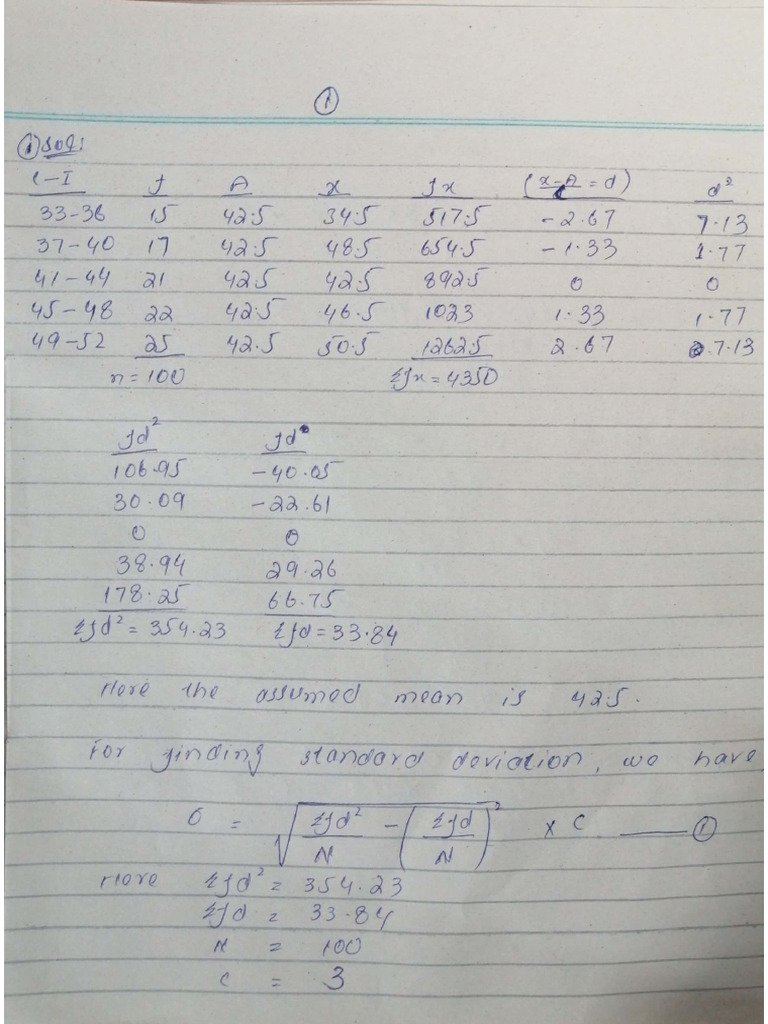 ①
① Sol:
C-I f A x fx (x-A/C = d) d²
33-36 15 42.5 34.5 517.5 -2.67 7.13
37-40 17 42.5 48.5 654.5 -1.33 1.77
41-44 21 42.5 42.5 892.5 0 0
45-48 22 42.5 46.5 1023 1.33 1.77
49-52 25 42.5 50.5 1262.5 2.67 7.13
n = 100 Σfx = 4350
fd² fd
106.95 -40.05
30.09 -22.61
0 0
38.94 29.26
178.25 66.75
Σfd² = 354.23 Σfd = 33.84
Here the assumed mean is 42.5.
For finding standard deviation, we have
σ = √(Σfd²/N - (Σfd/N)²) × C —— ①
Here Σfd² = 354.23
Σfd = 33.84
N = 100
C = 3